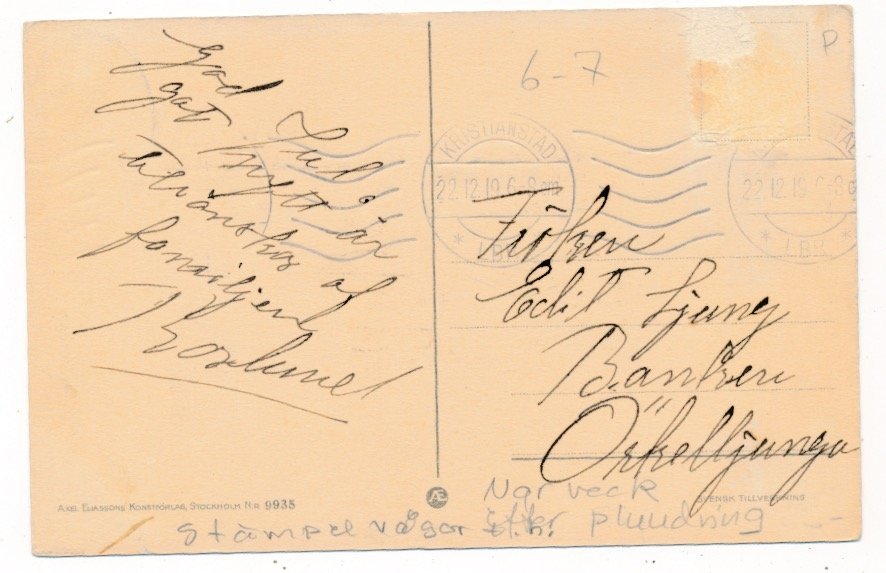 God Jul o
gott nytt år
tillönskas af
familjen
Roslund
6-7
P
KRISTIANSTAD
22.12.19.6-8 em
* LBR *
22.12.19.6-8
* LBR
Fröken
Edit Ljung
Banken
Örkelljunga
AXEL ELIASSONS KONSTFÖRLAG, STOCKHOLM N:R 9935
AE
SVENSK TILLVERKNING
Ngr veck
Stämpel vågor efter plundring